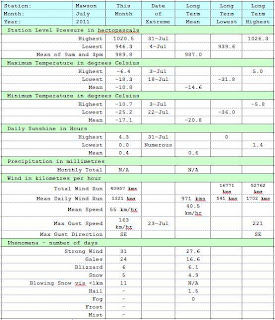 Station: Mawson This Date Long Long Long
Month: July Month of Term Term Term
Year: 2011 Extreme Mean Lowest Highest
Station Level Pressure in hectopascals
Highest 1020.5 31-Jul 1026.3
Lowest 946.3 4-Jul 939.6
Mean of 9am and 3pm 989.8 987.0
Maximum Temperature in degrees Celsius
Highest -6.4 3-Jul 5.0
Lowest -18.3 18-Jul -31.8
Mean -10.8 -14.6
Minimum Temperature in degrees Celsius
Highest -10.7 3-Jul -5.8
Lowest -25.2 22-Jul -36.0
Mean -17.1 -20.8
Daily Sunshine in Hours
Highest 4.3 31-Jul 0
Lowest 0.0 Numerous 1.4
Mean 0.4 0.6
Precipitation in millimetres
Monthly Total N/A N/A
Wind in kilometres per hour
Total Wind Run 16771 km 52762 km
Mean Daily Wind Run 1321 km 971 km 541 km 1702 km
Mean Speed 55 km/hr 40.5 km/hr
Max Gust Speed 163 km/hr 23-Jul 221
Max Gust Direction SE SE
Phenomena - number of days
Strong Wind 31 27.6
Gales 24 16.6
Blizzard 6 6.1
Snow 5 4.9
Blowing Snow vis <1km 11 N/A
Hail - 1.5
Fog - 0
Frost -
Mist -